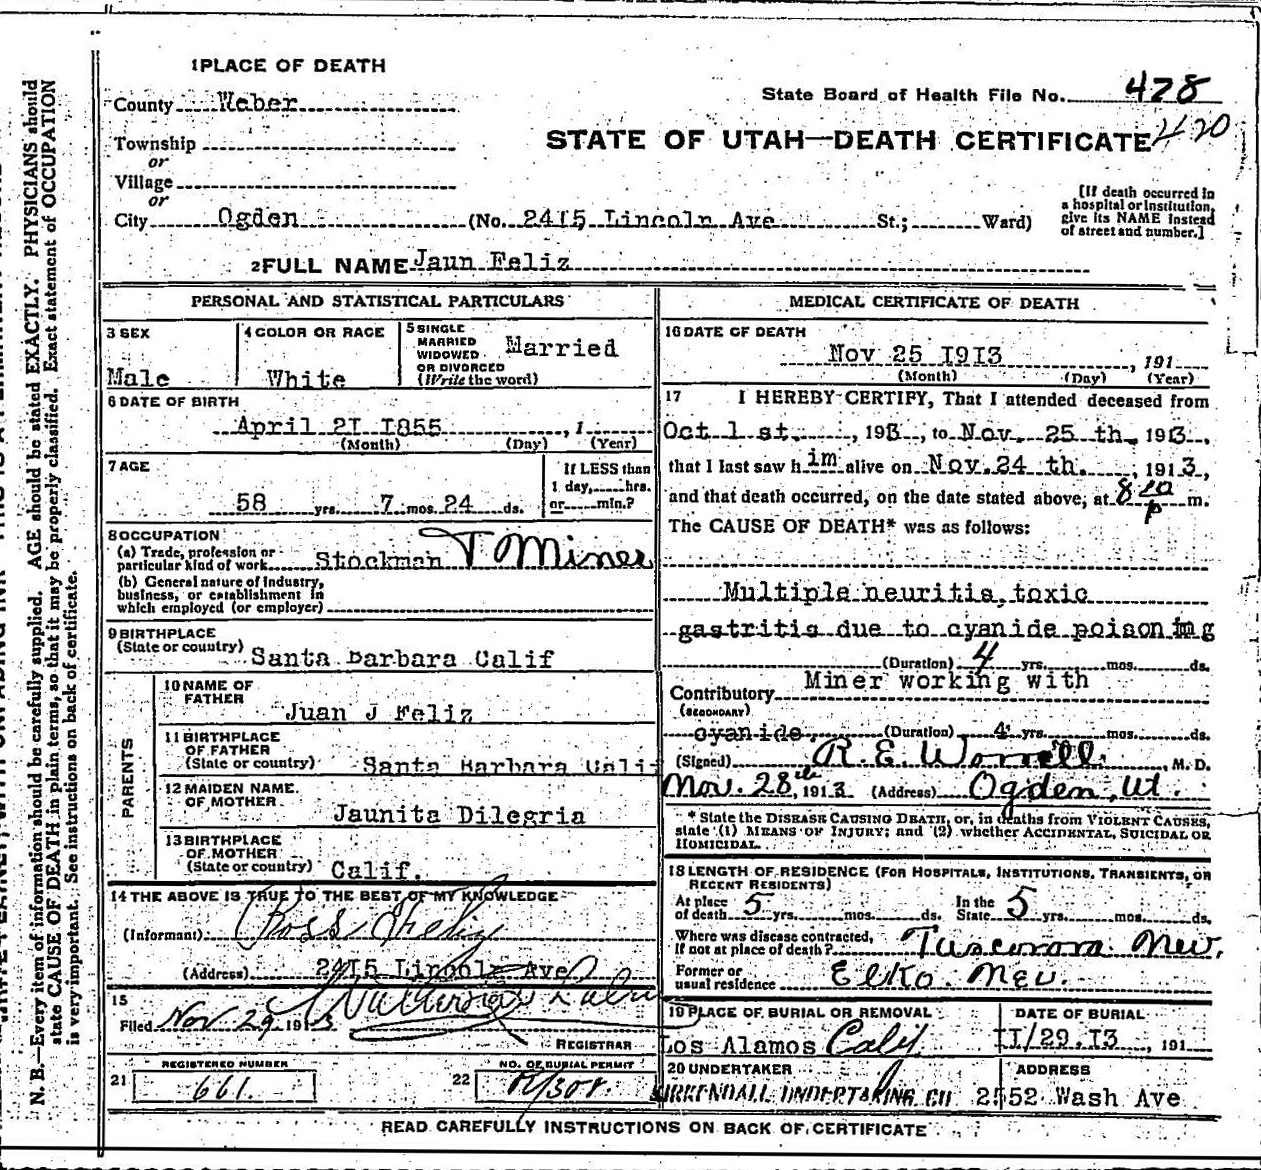 1 PLACE OF DEATH
County Weber
State Board of Health File No. 428
420
STATE OF UTAH—DEATH CERTIFICATE
Township
or
Village
or
City Ogden (No. 2415 Lincoln Ave St.; Ward)
[If death occurred in
a hospital or institution,
give its NAME instead
of street and number.]
2 FULL NAME Jaun Feliz
PERSONAL AND STATISTICAL PARTICULARS
3 SEX
Male
4 COLOR OR RACE
White
5 SINGLE
MARRIED
WIDOWED
OR DIVORCED
(Write the word)
Married
6 DATE OF BIRTH
April 2I I855 , 1
(Month) (Day) (Year)
7 AGE
58 yrs. 7 mos. 24 ds.
If LESS than
1 day, hrs.
or min.?
8 OCCUPATION
(a) Trade, profession or
particular kind of work Stockman & Miner
(b) General nature of industry,
business, or establishment in
which employed (or employer)
9 BIRTHPLACE
(State or country) Santa Barbara Calif
PARENTS
10 NAME OF
FATHER
Juan J Feliz
11 BIRTHPLACE
OF FATHER
(State or country) Santa Barbara Calif
12 MAIDEN NAME
OF MOTHER
Jaunita Dilegria
13 BIRTHPLACE
OF MOTHER
(State or country) Calif.
14 THE ABOVE IS TRUE TO THE BEST OF MY KNOWLEDGE
(Informant) Ross Feliz
(Address) 24I5 Lincoln Ave
15
Filed Nov 29 1913
REGISTRAR
REGISTERED NUMBER
21 661
NO. OF BURIAL PERMIT
22
MEDICAL CERTIFICATE OF DEATH
16 DATE OF DEATH
Nov 25 I9I3 , 191
(Month) (Day) (Year)
17 I HEREBY CERTIFY, That I attended deceased from
Oct 1 st. , 193, to Nov. 25 th. 1913,
that I last saw him alive on Nov. 24 th. , 1913,
and that death occurred, on the date stated above, at 8 p m.
The CAUSE OF DEATH* was as follows:
Multiple neuritis, toxic
gastritis due to cyanide poisoning
(Duration) 4 yrs. mos. ds.
Contributory Miner working with
(SECONDARY)
cyanide. (Duration) 4 yrs. mos. ds.
(Signed) R. E. Worrell , M. D.
Nov. 28th, 1913 (Address) Ogden, Ut.
* State the DISEASE CAUSING DEATH, or, in deaths from VIOLENT CAUSES,
state (1) MEANS OF INJURY; and (2) whether ACCIDENTAL, SUICIDAL OR
HOMICIDAL.
18 LENGTH OF RESIDENCE (FOR HOSPITALS, INSTITUTIONS, TRANSIENTS, OR
RECENT RESIDENTS)
At place
of death 5 yrs. mos. ds.
In the
State 5 yrs. mos. ds.
Where was disease contracted,
if not at place of death? Tuscarora Nev.
Former or
usual residence Elko. Nev.
19 PLACE OF BURIAL OR REMOVAL
Los Alamos Calif
DATE OF BURIAL
II/29.I3 , 191
20 UNDERTAKER
KIRKENDALL UNDERTAKING CO
ADDRESS
2552 Wash Ave
READ CAREFULLY INSTRUCTIONS ON BACK OF CERTIFICATE
N. B.—Every item of information should be carefully supplied. AGE should be stated EXACTLY. PHYSICIANS should
state CAUSE OF DEATH in plain terms, so that it may be properly classified. Exact statement of OCCUPATION
is very important. See instructions on back of certificate.